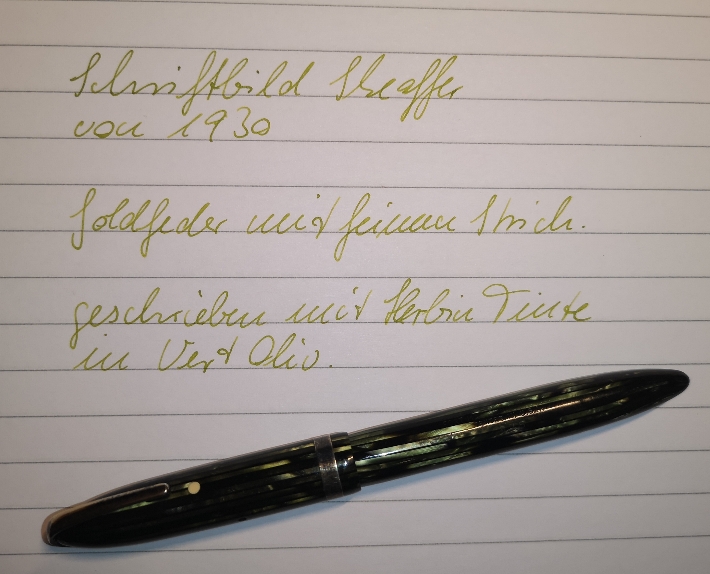 Schriftbild Sheaffer
von 1930
Goldfeder mit feinem Strich.
geschrieben mit Herbin Tinte
in Vert Olive.